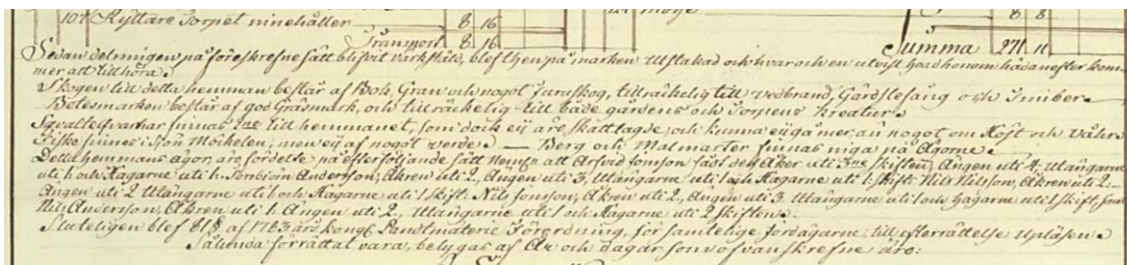 107 Ryttare Torpet ninehåller 8 16
Transport 8 16 Summa 271 11
Sedan delningen på föreskrefne sätt blifvit värkstäld, blef then på marken Utstakad och hvar och en utvist hvad honom hädanefter kom-
mer att tillhöra.
Skogen till detta hemman består af Bok, Gran och något furuskog, tillräkelig till vedbrand, Gärdslefång och Timber
Betesmarken består af god Gräsmark, och tillräkelig till både gårdens och Torpens Kreatur
Sqvalteqvarnar finnas 2ne till hemmanet, som dock eij äre skattlagde, och kunna eij gå mer, än något om Höst och Våhr
Fiske finnes i Sjön Möckelen, men eij af något verde — Berg och Malmarter finnas inga på Ägorne
Detta hemmans ägor, äre fördelte på efterföljande sätt att Arfvid Jonsson fådt des Åker uti 3ne skiften, Ängen uti 4, Utängarne
uti 1 och Hagarne uti 1. Torbiörn Andersson, Åkren uti 2, Ängen uti 3, Utängarne uti 1 och Hagarne uti 1 skift. Nils Nilsson, Åkren uti 2
Ängen uti 2 Utängarne uti 1 och Hagarne uti 1 skift. Nils Jonsson, Åkren uti 2, Ängen uti 3 Utängarne uti 1 och Hagarne uti 1 skift samt
Nils Andersson, Åkren uti 1. Ängen uti 2, Utängarne uti 1 och Hagarne uti 2 skiften
Sluteligen blef 81§ af 1783 års kongl Landtmäterie Förordning, för samtelige Jordägarne, till efterrättelse upläsen
Sålunda förrättat vara, betygas af År och dagar som ofvanskrefne äro: